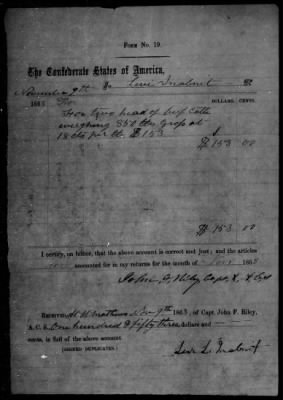 FORM No. 19.
The Confederate States of America,
November 9th To Levi Inabnit Dr.
DOLLARS. CENTS.
1863 For
two head of beef Cattle
weighing 850 lbs Gross at
18 cts per lb $153
$ 153 00
$ 153 00
I certify, on honor, that the above account is correct and just; and the articles
accounted for in my returns for the month of Nov 1863
John F. Riley Capt. &
RECEIVED St Mathews Nov 9th 1863, of Capt. John F. Riley,
A. C. S. One hundred & fifty three dollars and
cents, in full of the above account
(SIGNED DUPLICATES.)
Levi L. Inabnit